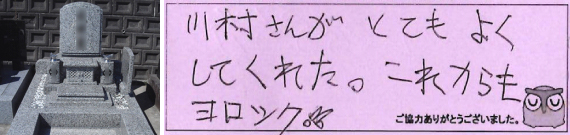 川村さんが とても よく
してくれた。これからも
ヨロシク!!
ご協力ありがとうございました。